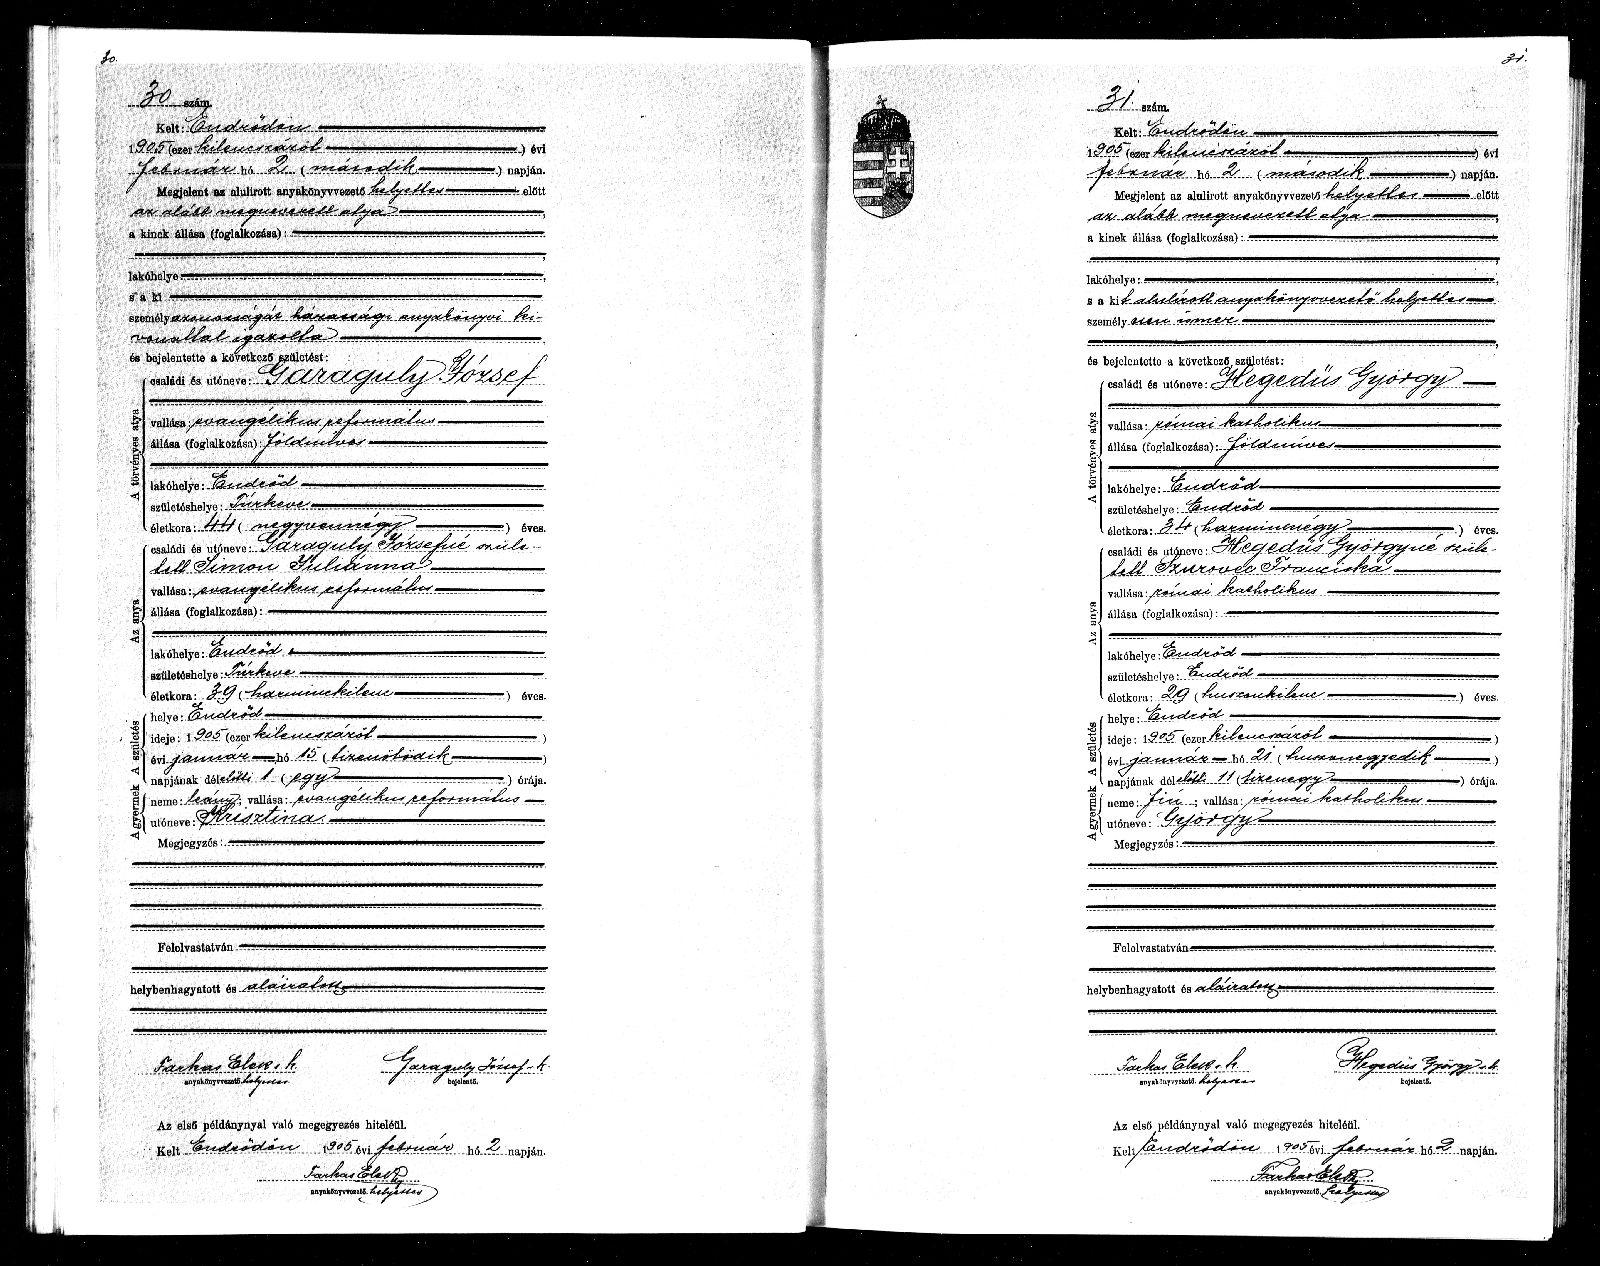 30.
30 szám.
Kelt: Endrődön
1905 (ezer kilencszázöt) évi
február hó 2 (második) napján.
Megjelent az alulirott anyakönyvvezető helyettes előtt
az alább megnevezett atya,
a kinek állása (foglalkozása):
lakóhelye
s a ki
személyazonosságát házassági anyakönyvi ki-
vonattal igazolta
és bejelentette a következő születést:
A törvényes atya
családi és utóneve: Garaguly József
vallása: evangélikus református
állása (foglalkozása): földmíves
lakóhelye: Endrőd
születéshelye: Túrkeve
életkora: 44 (negyvennégy) éves.
Az anya
családi és utóneve: Garaguly Józsefné szüle-
tett Simon Juliánna
vallása: evangélikus református
állása (foglalkozása):
lakóhelye: Endrőd
születéshelye: Túrkeve
életkora: 39 (harminckilenc) éves.
A születés
helye: Endrőd
ideje: 1905 (ezer kilencszázöt)
évi január hó 15 (tizenötödik)
napjának délelőtti 1 (egy) órája.
A gyermek
neme: leány; vallása: evangélikus református
utóneve: Krisztina
Megjegyzés:
Felolvastatván
helybenhagyatott és aláiratott
Farkas Elek s. k. Garaguly József s. k.
anyakönyvvezető. helyettes bejelentő.
Az első példánynyal való megegyezés hiteléül.
Kelt Endrődön 1905 évi február hó 2 napján.
Farkas Elek
anyakönyvvezető. helyettes
31.
31. szám.
Kelt: Endrődön
1905 (ezer kilencszázöt) évi
február hó 2 (második) napján.
Megjelent az alulirott anyakönyvvezető helyettes előtt
az alább megnevezett atya,
a kinek állása (foglalkozása):
lakóhelye:
s a kit alulírott anyakönyvvezető helyettes
személyesen ismer
és bejelentette a következő születést:
A törvényes atya
családi és utóneve: Hegedüs György
vallása: római katholikus
állása (foglalkozása): földmíves
lakóhelye: Endrőd
születéshelye: Endrőd
életkora: 34 (harmincnégy) éves.
Az anya
családi és utóneve: Hegedüs Györgyné szüle-
tett Szurovec Franciska
vallása: római katholikus
állása (foglalkozása):
lakóhelye: Endrőd
születéshelye: Endrőd
életkora: 29 (huszonkilenc) éves.
A születés
helye: Endrőd
ideje: 1905 (ezer kilencszázöt)
évi január hó 21 (huszonegyedik)
napjának délelőtt 11 (tizenegy) órája.
A gyermek
neme: fiú; vallása: római katholikus
utóneve: György
Megjegyzés:
Felolvastatván
helybenhagyatott és aláiratott
Farkas Elek s. k. Hegedüs György s. k.
anyakönyvvezető. helyettes bejelentő.
Az első példánynyal való megegyezés hiteléül.
Kelt Endrődön 1905 évi február hó 2 napján.
Farkas Elek
anyakönyvvezető. helyettes